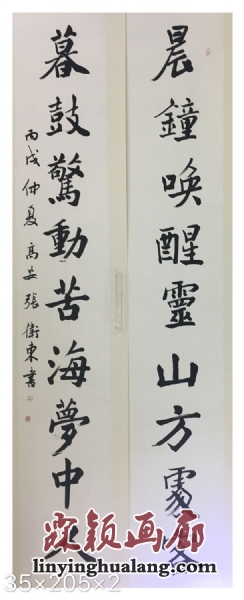 晨鐘喚醒靈山方
暮鼓驚動苦海夢中
丙戌仲夏高安張衛東書
霖颖画廊
linyinghualang.com
35×205×2